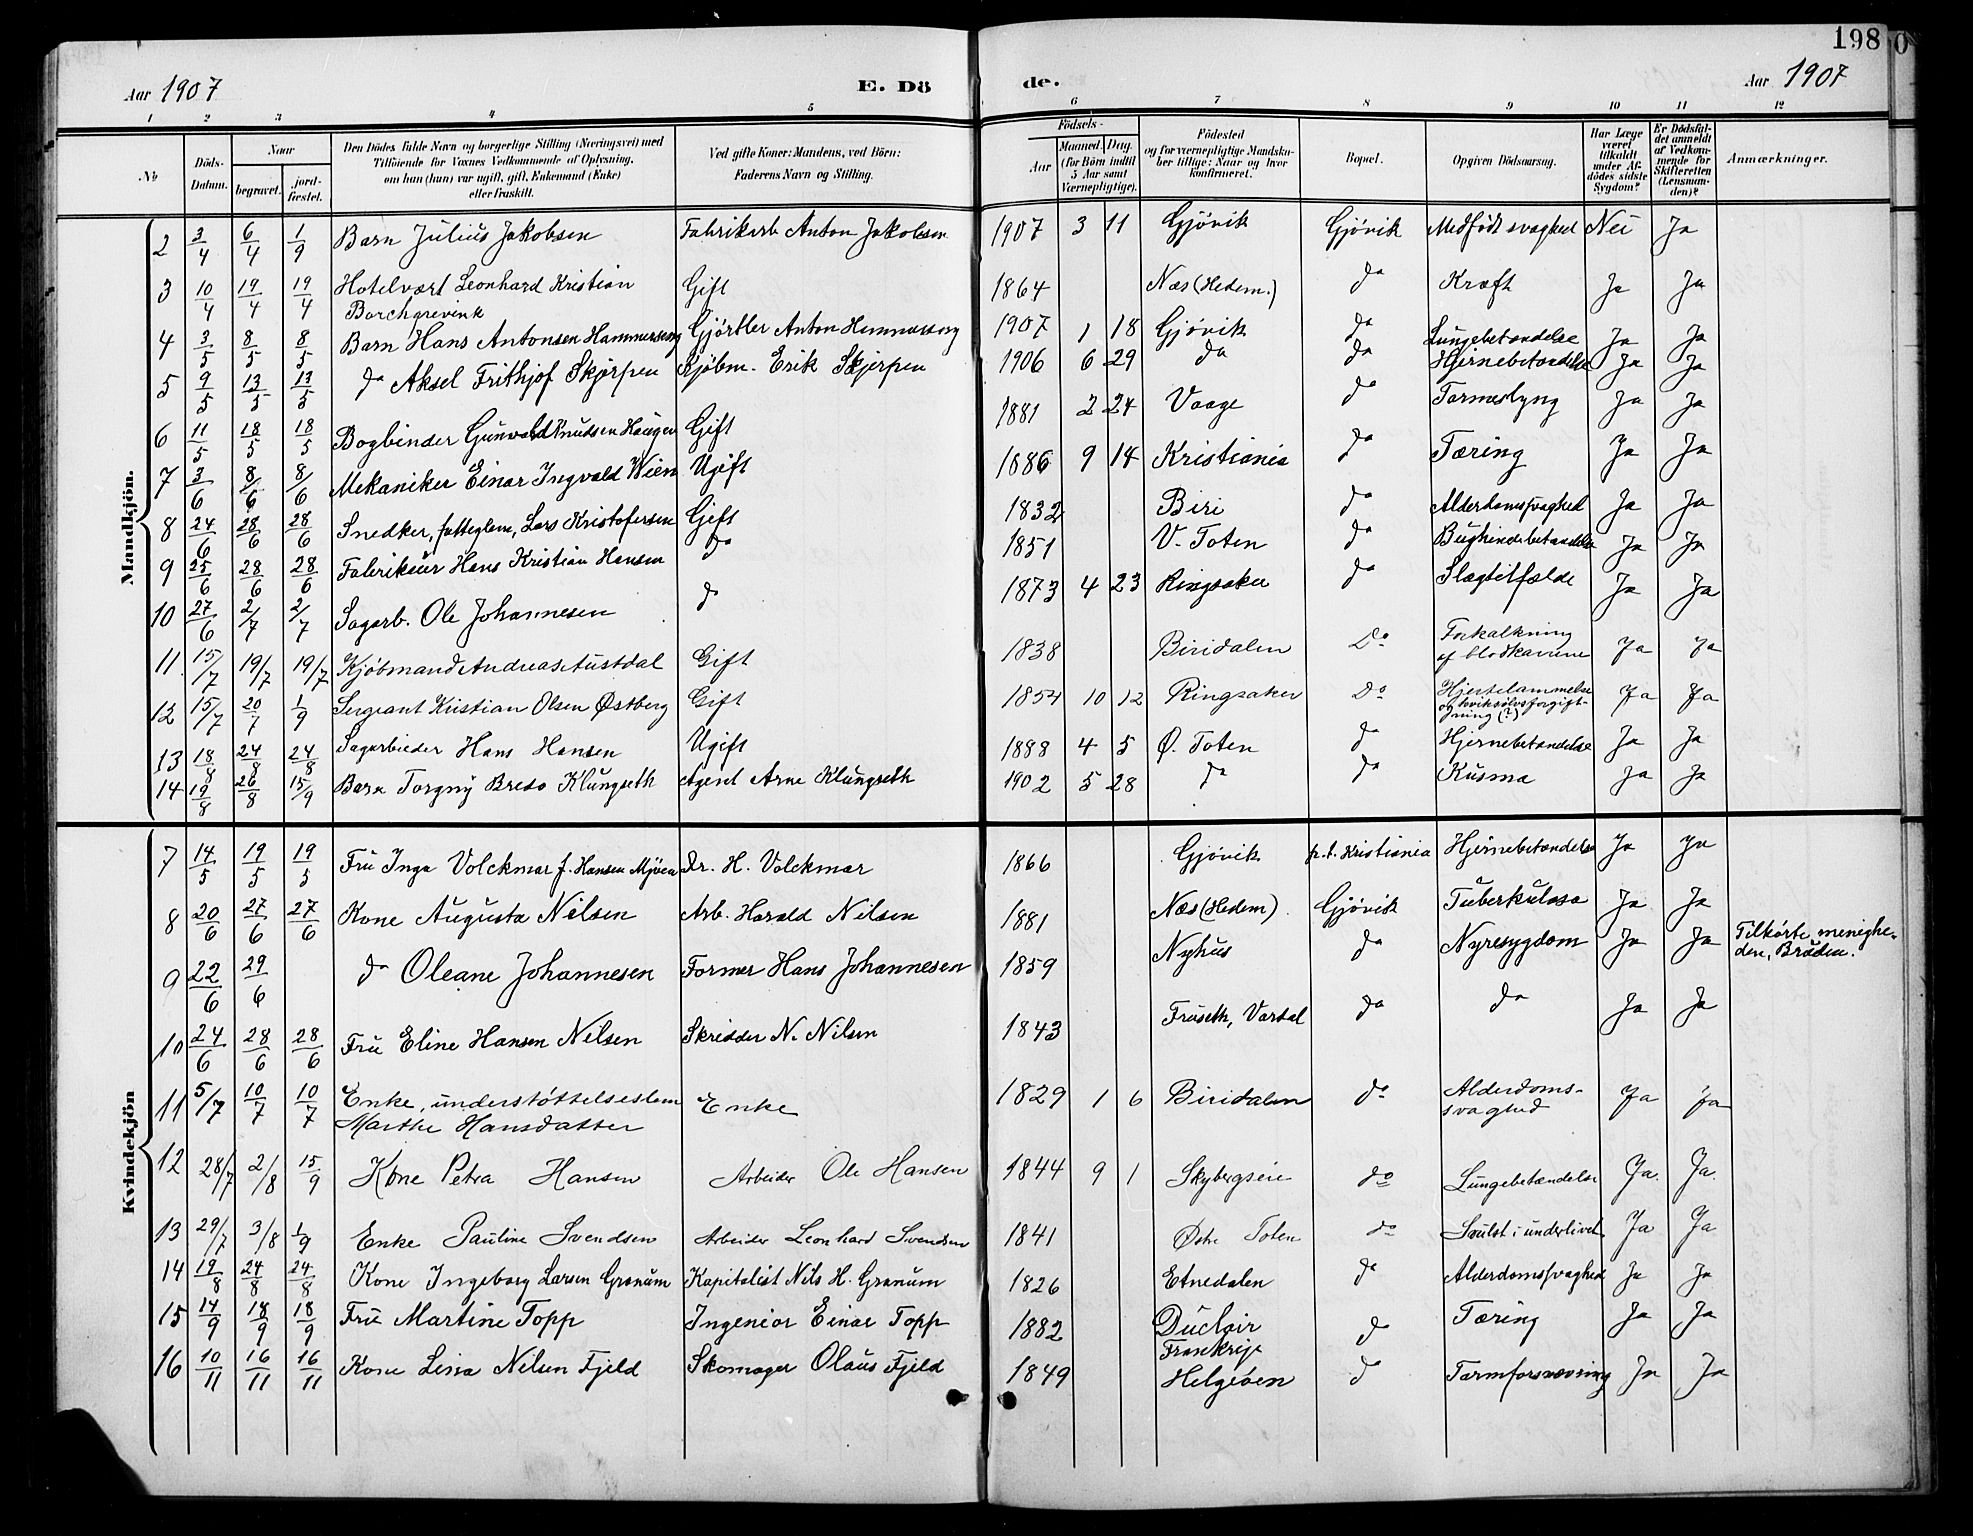 198
0
Aar 1907 E. Dö de. Aar 1907
1 2 3 4 5 6 7 8 9 10 11 12
No
Döds-Datum.
Naar
begravet. jord-fæstet.
Den Dödes fulde Navn og borgerlige Stilling (Næringsvei) med
Tilföiende for Voxnes Vedkommende af Oplysning,
om han (hun) var ugift, gift, Enkemand (Enke)
eller fraskilt.
Ved gifte Koner: Mandens, ved Börn:
Faderens Navn og Stilling.
Födsels-
Aar Maaned. Dag.
(for Börn indtil
5 Aar samt
Værnepligtige).
Födested
og for værnepligtige Mandsku-
ber tillige: Naar og hvor
konfirmeret.
Bopæl.
Opgiven Dödsaarsag.
Har Læge
været
tilkaldt
under Af-
dödes sidste
Sygdom?
Er Dödsfal-
det anmeldt
af Vedkom-
mende for
Skifteretten
(Lensman-
den)?
Anmærkninger.
Mandkjön.
2 3/4 6/4 1/9 Barn Julius Jakobsen Fabrikarb Anton Jakobsen 1907 3 11 Gjövik Gjövik Medfödt svaghed Nei Ja
3 10/4 19/4 19/4 Hotelvært Leonhard Kristian Gift 1864 Næs (Hedem.) do Kræft Ja Ja
Borchgrevink
4 3/5 8/5 8/5 Barn Hans Antonsen Hammerseng Gjörtler Anton 1907 1 18 Gjövik do Lungebetændelse Ja Ja
5 9/5 13/5 13/5 do Aksel Frithjof Skjerpen Kjöbm. Erik Skjerpen 1906 6 29 do do Hjernebetændelse Ja Ja
6 11/5 18/5 18/5 Bogbinder Gunvald Knudsen Haugen Gift 1881 2 24 Vaage do Tarmeslyng Ja Ja
7 3/6 8/6 8/6 Mekaniker Einar Ingvald Wien Ugift 1886 9 14 Kristiania do Tæring Ja Ja
8 24/6 28/6 28/6 Snedker, fattiglem, Lars Kristofersen Gift 1832 Biri do Alderdomssvaghed Ja Ja
9 25/6 28/6 28/6 Fabrikeur Hans Kristian Hansen do 1851 V. Toten do Bughindebetændelse Ja Ja
10 27/6 2/7 2/7 Sagarb. Ole Johannesen do 1873 4 23 Ringsaker do Slagtilfælde Ja Ja
11 15/7 19/7 19/7 Kjöbmand Andreas Austdal Gift 1838 Biridalen Do Forkalkning
af blodkarrene Ja Ja
12 15/7 20/7 1/9 Sergeant Kristian Olsen Østberg Gift 1854 10 12 Ringsaker Do Hjertelammelse
og kviksølvsforgift-
ning (?) Ja Ja
13 18/8 24/8 24/8 Sagarbieder Hans Hansen Ugift 1888 4 5 Ø. Toten do Hjernebetændelse Ja Ja
14 19/8 26/8 15/9 Barn Torgny Bredo Klungseth Agent Arne Klungseth 1902 5 28 do do Kusma Ja Ja
Kvindekjön
7 14/5 19/5 19/5 Fru Inga Volckmar f. Hansen Mjöen Dr. H. Volckmar 1866 Gjövik p.t. Kristiania Hjernebetændelse Ja Ja
8 20/6 27/6 27/6 Kone Augusta Nilsen Arb. Harald Nilsen 1881 Næs (Hedem) Gjövik Tuberkulose Ja Ja
9 22/6 29/6 do Oleane Johannesen Former Hans Johannesen 1859 Nyhus do Nyresygdom Ja Ja Tilhörte menighe-
den, Bruden.
10 24/6 28/6 28/6 Fru Eline Hansen Nilsen Skredder N. Nilsen 1843 Fruseth, Vardal do do Ja Ja
11 5/7 10/7 10/7 Enke, understøttelseslem Enke 1829 1 6 Biridalen do Alderdoms-
svaghed Ja Ja
Marthe Hansdatter
12 28/7 2/8 15/9 Kone Petra Hansen Arbeider Ole Hansen 1844 9 1 Skybergseie do Lungebetændelse Ja. Ja.
13 29/7 3/8 1/9 Enke Pauline Svendsen Arbeider Leonhard Svendsen 1841 Østre Toten do Svulst i underlivet Ja Ja
14 19/8 24/8 24/8 Kone Ingeborg Larsen Granum Kapitalist Nils H. Granum 1826 Etnedalen do Alderdomssvaghed Ja Ja
15 14/9 18/9 18/9 Fru Martine Topp Ingeniör Einar Topp 1882 Duclair
Frankrige do Tæring Ja Ja
16 10/11 16/11 16/11 Kone Lina Nilsen Fjeld Skomager Olaus Fjeld 1849 Helgeöen do Tarmforsnevring Ja Ja